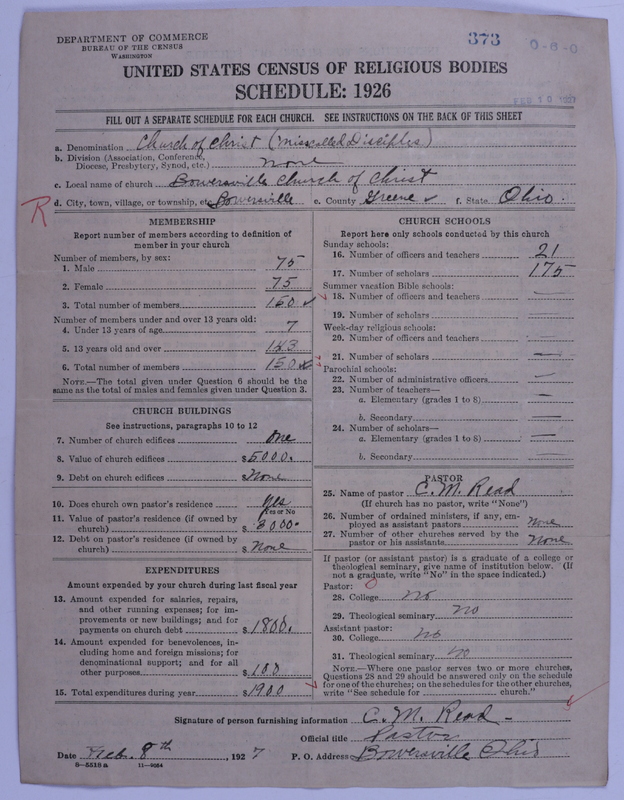 DEPARTMENT OF COMMERCE
BUREAU OF THE CENSUS
WASHINGTON
373
0-6-0
UNITED STATES CENSUS OF RELIGIOUS BODIES
SCHEDULE: 1926
FEB 10 1927
FILL OUT A SEPARATE SCHEDULE FOR EACH CHURCH. SEE INSTRUCTIONS ON THE BACK OF THIS SHEET
a. Denomination Church of Christ (Miscalled Disciples)
b. Division (Association, Conference, Diocese, Presbytery, Synod, etc.) none
c. Local name of church Bowersville Church of Christ
R d. City, town, village, or township, etc. Bowersville e. County Greene f. State Ohio.
MEMBERSHIP
Report number of members according to definition of
member in your church
Number of members, by sex:
1. Male 75
2. Female 75
3. Total number of members 150
Number of members under and over 13 years old:
4. Under 13 years of age 7
5. 13 years old and over 143
6. Total number of members 150
NOTE.—The total given under Question 6 should be the
same as the total of males and females given under Question 3.
CHURCH BUILDINGS
See instructions, paragraphs 10 to 12
7. Number of church edifices one
8. Value of church edifices $5000.
9. Debt on church edifices $None
10. Does church own pastor's residence Yes
Yes or No
11. Value of pastor's residence (if owned by
church) $3000.
12. Debt on pastor's residence (if owned by
church) $None
EXPENDITURES
Amount expended by your church during last fiscal year
13. Amount expended for salaries, repairs,
and other running expenses; for im-
provements or new buildings; and for
payments on church debt $1800.
14. Amount expended for benevolences, in-
cluding home and foreign missions; for
denominational support; and for all
other purposes $100
15. Total expenditures during year $1900
CHURCH SCHOOLS
Report here only schools conducted by this church
Sunday schools:
16. Number of officers and teachers 21
17. Number of scholars 175
Summer vacation Bible schools:
18. Number of officers and teachers —
19. Number of scholars —
Week-day religious schools:
20. Number of officers and teachers —
21. Number of scholars —
Parochial schools:
22. Number of administrative officers —
23. Number of teachers—
a. Elementary (grades 1 to 8) —
b. Secondary —
24. Number of scholars—
a. Elementary (grades 1 to 8) —
b. Secondary —
PASTOR
25. Name of pastor C. M. Read
(If church has no pastor, write "None")
26. Number of ordained ministers, if any, em-
ployed as assistant pastors none
27. Number of other churches served by the
pastor or his assistants None
If pastor (or assistant pastor) is a graduate of a college or
theological seminary, give name of institution below. (If
not a graduate, write "No" in the space indicated.)
Pastor:
28. College no
29. Theological seminary no
Assistant pastor:
30. College no
31. Theological seminary no
NOTE.—Where one pastor serves two or more churches,
Questions 28 and 29 should be answered only on the schedule
for one of the churches; on the schedules for the other churches,
write "See schedule for church."
Signature of person furnishing information C. M. Read
Official title Pastor
Date Feb. 8th, 1927 P. O. Address Bowersville Ohio
8—5518 a 11—9054